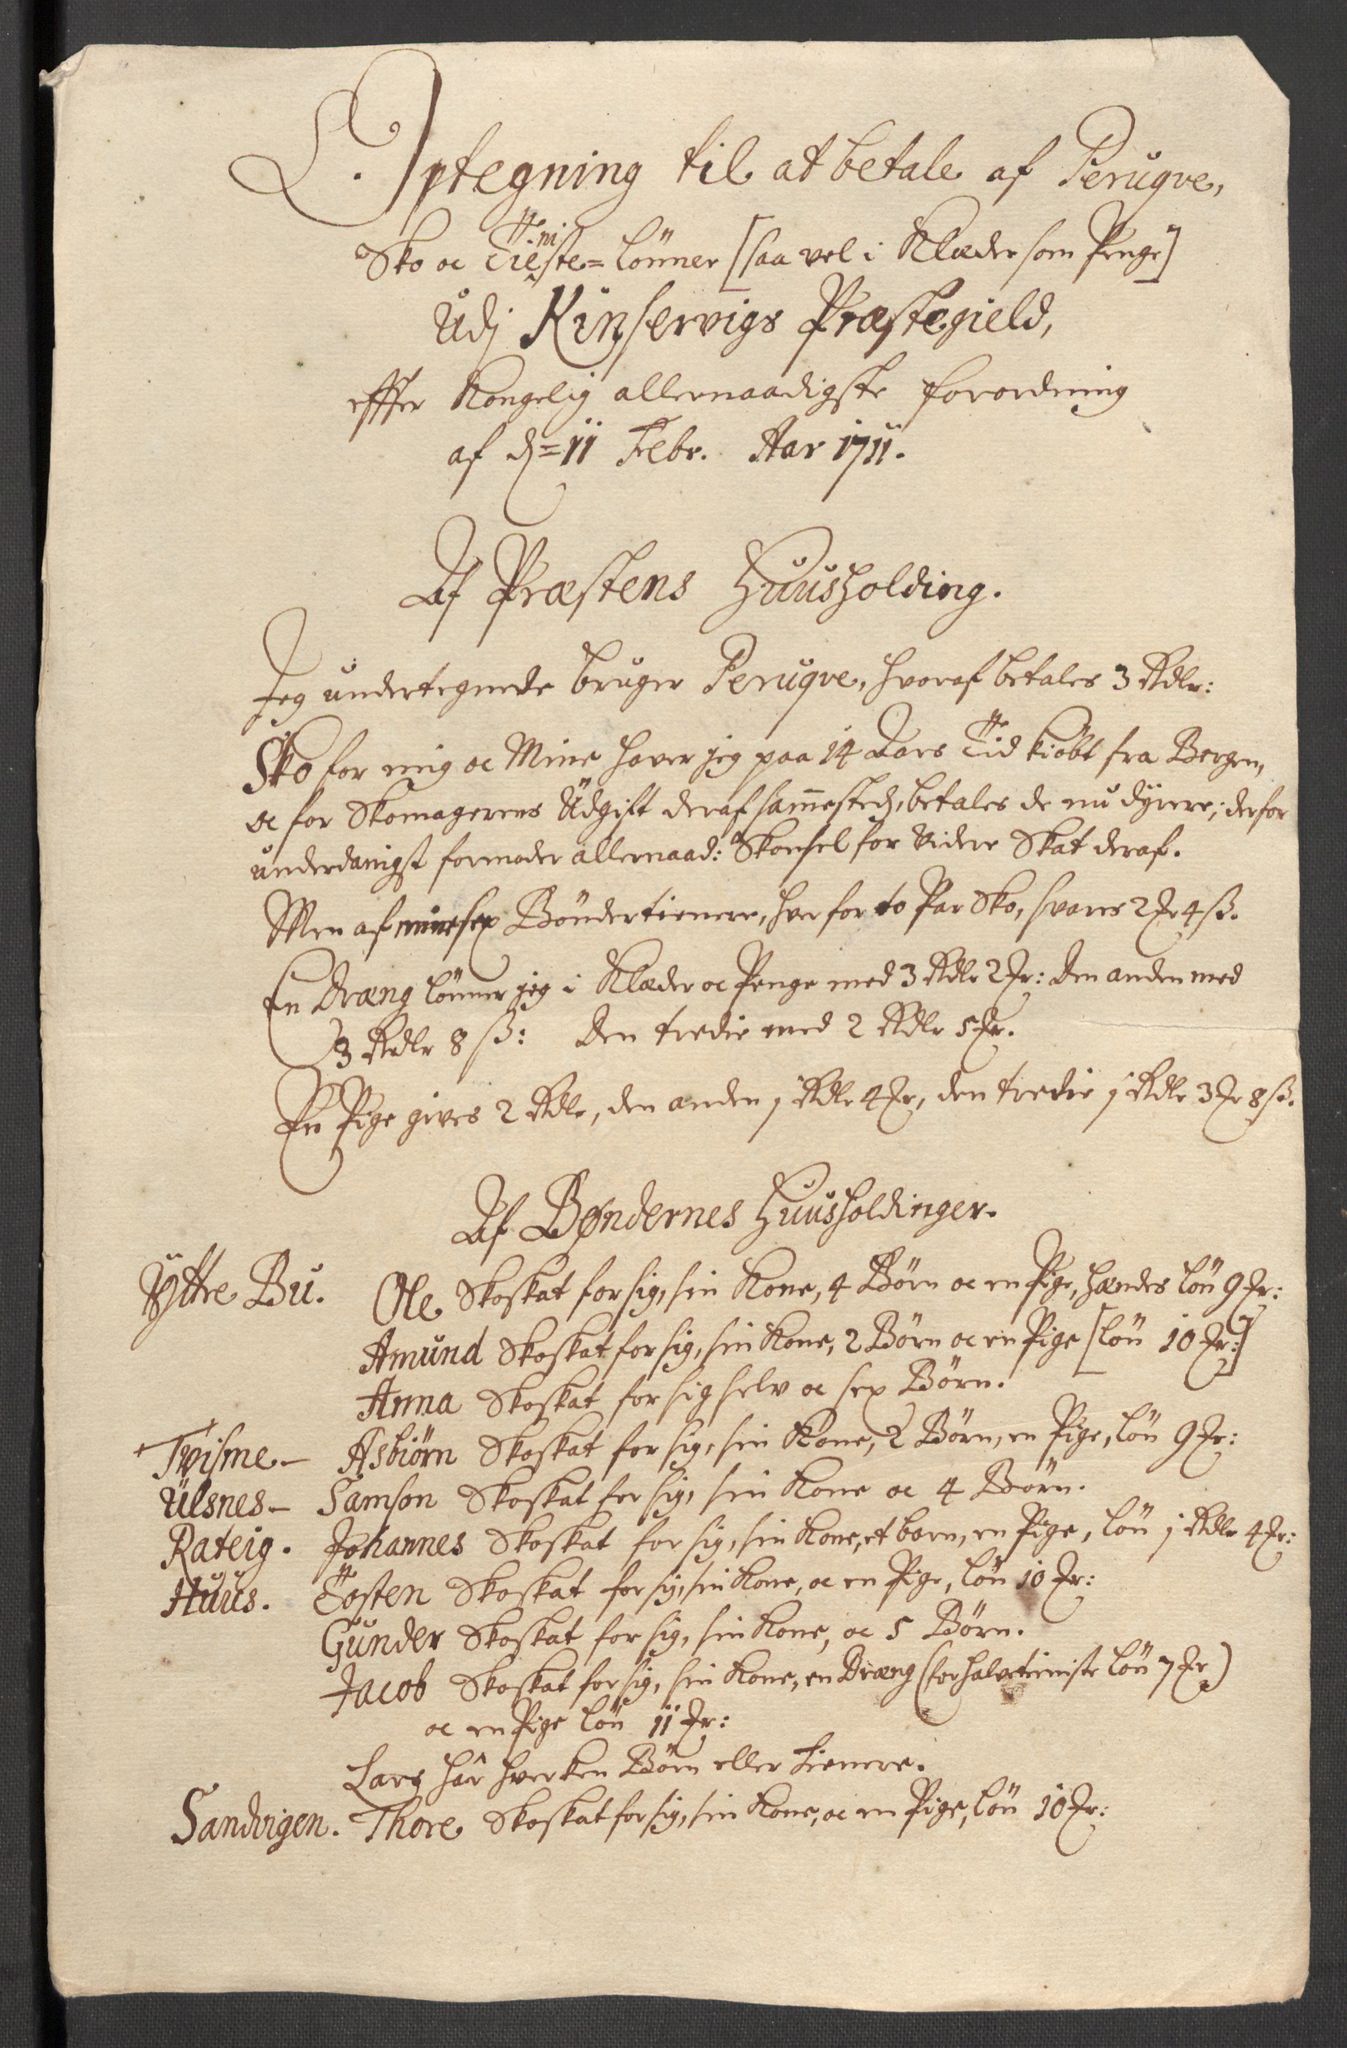 L. Optegning til at betale af Peruqve,
Sko oc Tieniste=Lönner [saa vel i Klæder som Penge]
Udj Kinservigs Præstegield,
efter Kongelig allernaadigste forordning
af d= 11 Febr. Aar 1711.
Af Præstens Huusholding.
Jeg undertegnede bruger Peruqve, hvoraf betales 3 Rdlr:
Sko for mig oc Mine haver jeg paa 14 Aars Tid kiöbt fra Bergen,
oc for Skomagerens Üdgift deraf sam̅ested, betales de nu dÿrere; derfor
underdanigst formoder allernaad: Skonsel for videre Skat deraf.
Men af mine sex Böndertienere, hver for to Par Sko, svares 2 Jr 4 ß.
En Dræng lönner jeg i Klæder oc Penge med 3 Rdlr 2 Jr: Den anden med
3 Rdlr 8 ß: Den tredie med 2 Rdlr 5 Jr.
En Pige gives 2 Rdlr, den anden 1 Rdlr 4 Jr, den tredie 1 Rdlr 3 Jr 8 ß.
Af Bøndernes Huusholdinger.
Yttre Bu. Ole Skoskat for sig, sin Kone, 4 Börn oc en Pige, hændes Lön 9 Jr:
Amund Skoskat for sig, sin Kone, 2 Börn oc en Pige [Lön 10 Jr:]
Anna Skoskat for sig selv oc sex Börn.
Tvisme– Asbiörn Skoskat for sig, sin Kone, 2 Börn, en Pige, Lön 9 Jr:
Ülsnes– Samson Skoskat for sig, sin Kone oc 4 Börn.
Rateig. Johannes Skoskat for sig, sin Kone, et barn, en Pige, Lön 1 Rdlr 4 Jr:
Huus. Tosten Skoskat for sig, sin Kone, oc en Pige, Lön 10 Jr:
Gunder Skoskat for sig, sin Kone, oc 5 Börn.
Jacob Skoskat for sig, sin Kone, en Dræng (for halvetieniste Lön 7 Jr)
oc en Pige Lön 11 Jr:
Lars hâr hverken Börn eller Tienere.
Sandvigen. Thore Skoskat for sig, sin Kone, oc en Pige, Lön 10 Jr: